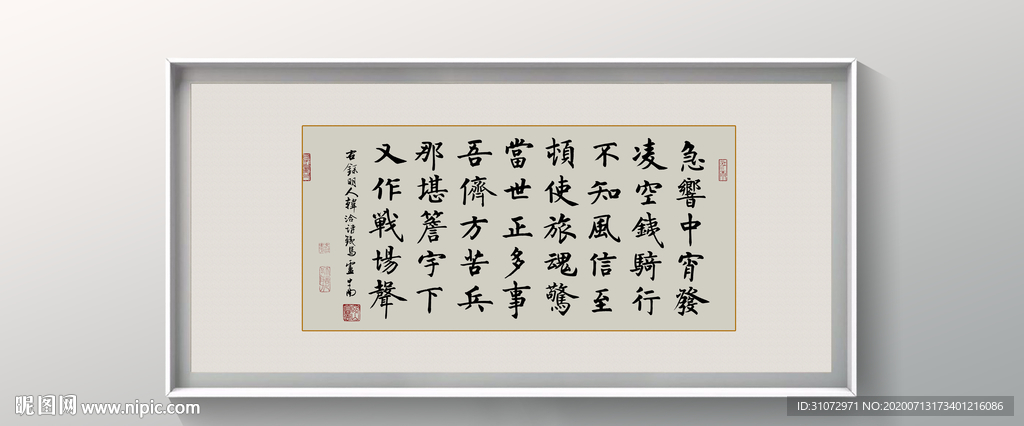 急響中宵發
凌空銕騎行
不知風信至
頓使旅魂驚
當世正多事
吾儕方苦兵
那堪簷宇下
又作戰場聲
右錄明人韓洽詩銕馬
昵图网 www.nipic.com
ID:31072971 NO:20200713173401216086